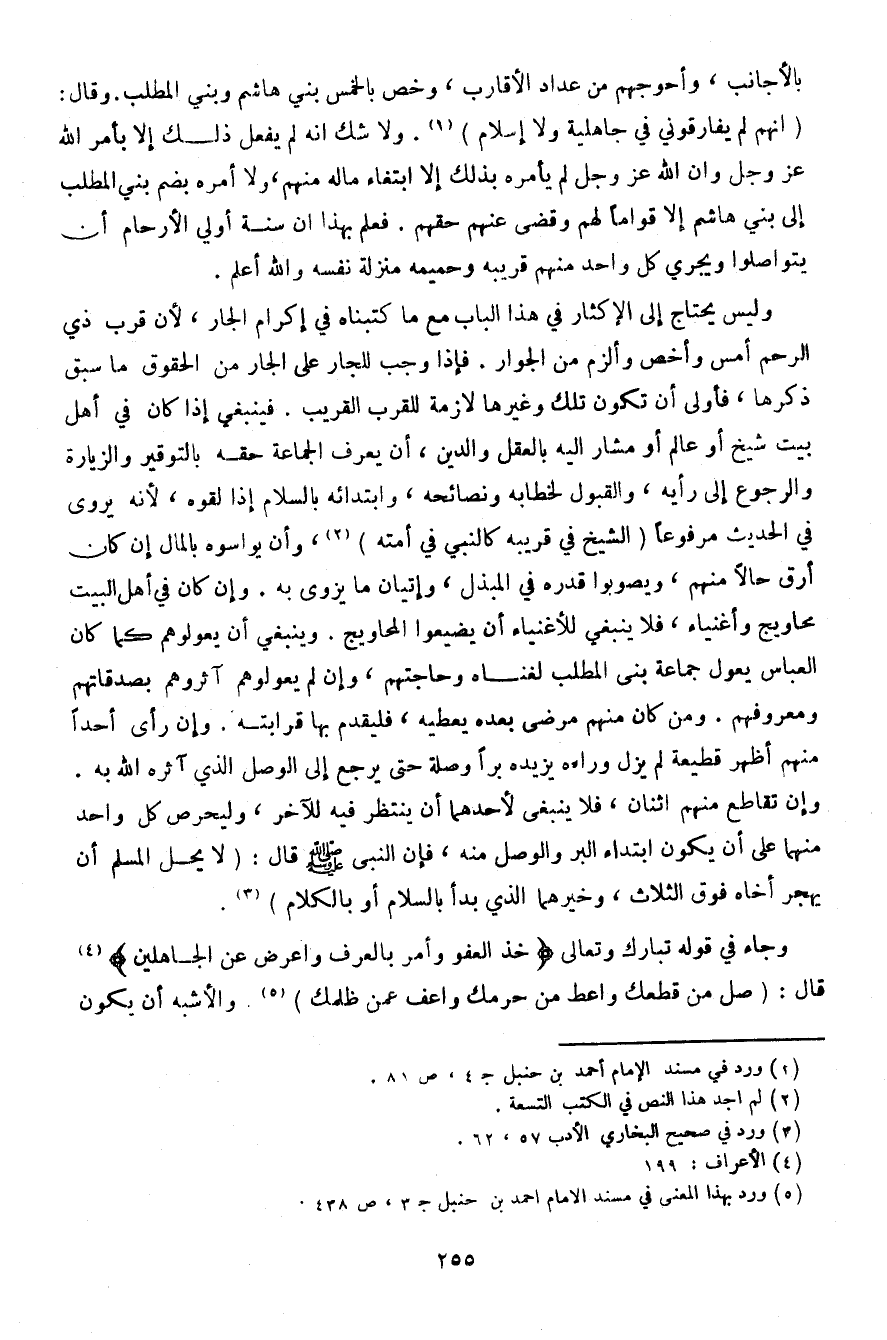 بالأجانب ، وأحوجهم من عداد الأقارب ، وخص بالخمس بني هاشم وبني المطلب. وقال :
( انهم لم يفارقوني في جاهلية ولا إسلام ) (١) . ولا شك انه لم يفعل ذلــك إلا بأمر الله
عز وجل وان الله عز وجل لم يأمره بذلك إلا ابتغاء ماله منهم، ولا أمره بضم بني المطلب
إلى بني هاشم إلا قواماً لهم وقضى عنهم حقهم . فعلم بهذا ان سنــة أولي الأرحام أن
يتواصلوا ويجري كل واحد منهم قريبه وحميمه منزلة نفسه والله أعلم .
وليس يحتاج إلى الإكثار في هذا الباب مع ما كتبناه في إكرام الجار ، لأن قرب ذي
الرحم أمس وأخص وألزم من الجوار . فإذا وجب للجار على الجار من الحقوق ما سبق
ذكرها ، فأولى أن تكون تلك وغيرها لازمة للقرب القريب . فينبغي إذا كان في أهل
بيت شيخ أو عالم أو مشار اليه بالعقل والدين ، أن يعرف الجماعة حقــه بالتوقير والزيارة
والرجوع إلى رأيه ، والقبول لخطابه ونصائحه ، وابتدائه بالسلام إذا لقوه ، لأنه يروى
في الحديث مرفوعاً ( الشيخ في قريبه كالنبي في أمته ) (٢) ، وأن يواسوه بالمال إن كان
أرق حالاً منهم ، ويصوبوا قدره في المبذل ، وإتيان ما يزوى به . وإن كان في أهل البيت
محاويج وأغنياء ، فلا ينبغي للأغنياء أن يضيعوا المحاويج . وينبغي أن يعولوهم كما كان
العباس يعول جماعة بنى المطلب لغنــاه وحاجتهم ، وإن لم يعولوهم آثروهم بصدقاتهم
ومعروفهم . ومن كان منهم مرضى بعده يعطيه ، فليقدم بها قرابتــه . وإن رأى أحداً
منهم أظهر قطيعة لم يزل وراءه يزيده براً وصلة حتى يرجع إلى الوصل الذي آثره الله به .
وإن تقاطع منهم اثنان ، فلا ينبغى لأحدهما أن ينتظر فيه للآخر ، وليحرص كل واحد
منهما على أن يكون ابتداء البر والوصل منه ، فإن النبى ﷺ قال : ( لا يحــل المسلم أن
يهجر أخاه فوق الثلاث ، وخيرهما الذي بدأ بالسلام أو بالكلام ) (٣) .
وجاء في قوله تبارك وتعالى ﴿ خذ العفو وأمر بالعرف واعرض عن الجــاهلين ﴾ (٤)
قال : ( صل من قطعك واعط من حرمك واعف عمن ظلمك ) (٥) . والأشبه أن يكون
(١) ورد في مسند الإمام أحمد بن حنبل جـ ٤ ، ص ٨١ .
(٢) لم اجد هذا النص في الكتب التسعة .
(٣) ورد في صحيح البخاري الأدب ٥٧ ، ٦٢ .
(٤) الأعراف : ١٩٩
(٥) ورد بهذا المعنى في مسند الامام احمد بن حنبل جـ ٣ ، ص ٤٣٨ .
٢٥٥